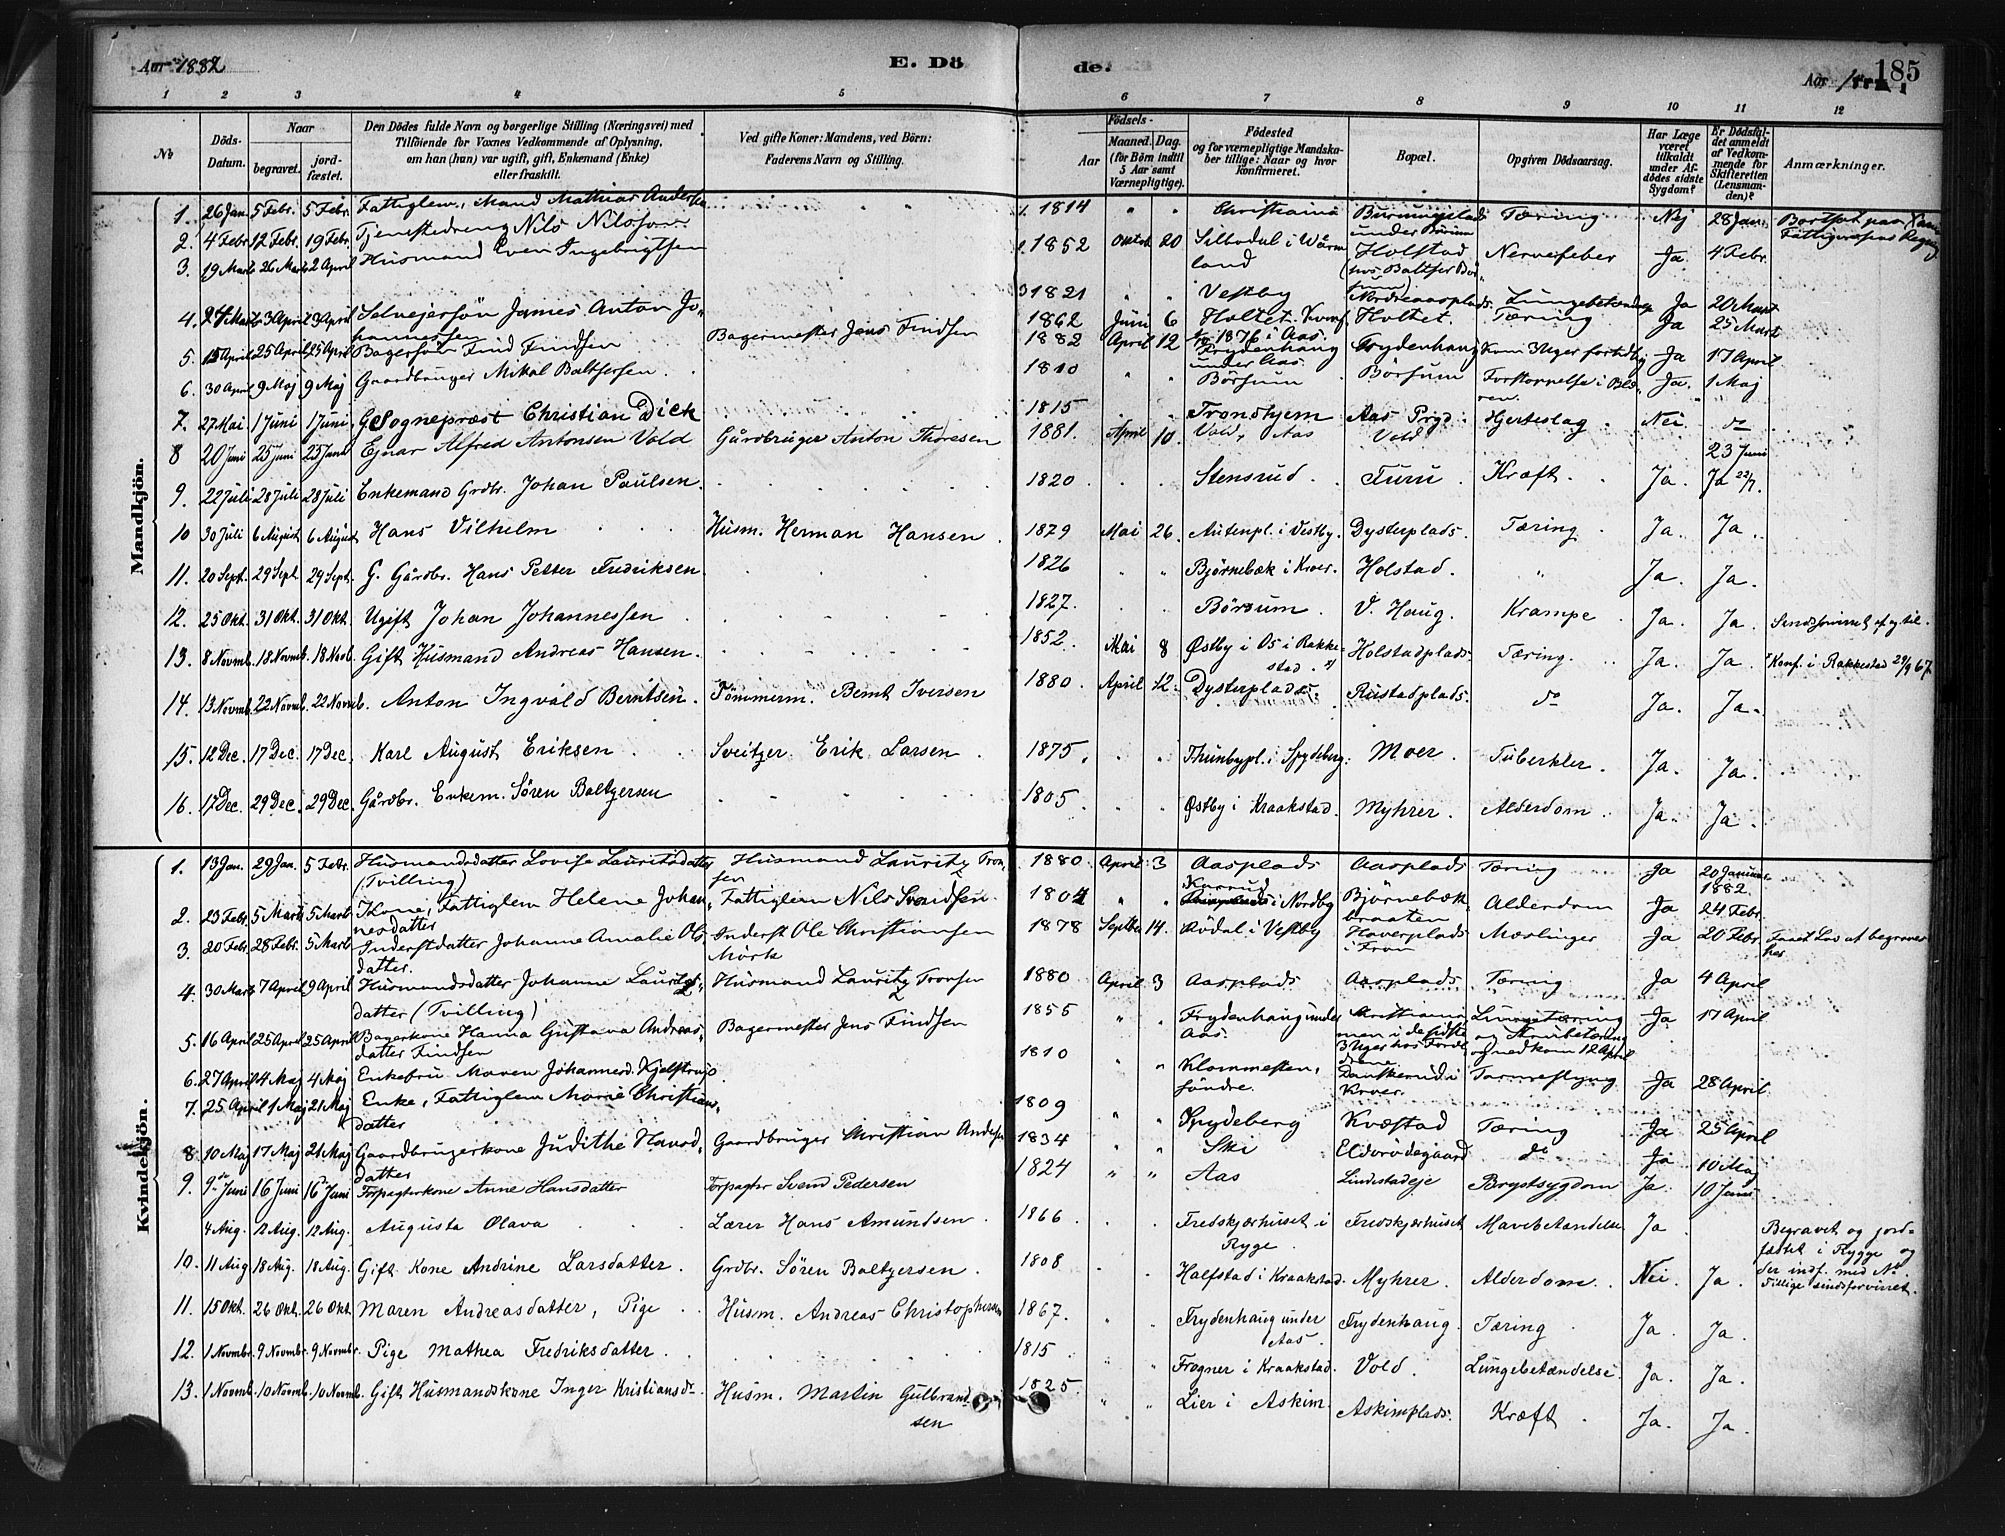 Aar 1882
E. Dö
de.
Aar
185
1 2 3 4 5 6 7 8 9 10 11 12
No
Döds-Datum.
Naar
begravet.
jord-fæstet.
Den Dödes fulde Navn og borgerlige Stilling (Næringsvei) med
Tilföiende for Voxnes Vedkommende af Oplysning,
om han (hun) var ugift, gift, Enkemand (Enke)
eller fraskilt.
Ved gifte Koner: Mandens, ved Börn:
Faderens Navn og Stilling.
Födsels-
Aar
Maaned. Dag.
(for Börn indtil
5 Aar samt
Værnepligtige).
Födested
og for værnepligtige Mandska-
ber tillige: Naar og hvor
konfirmeret.
Bopæl.
Opgiven Dödsaarsag.
Har Læge
været
tilkaldt
under Af-
dödes sidste
Sygdom?
Er Dödsfal-
det anmeldt
af Vedkom-
mende for
Skifteretten
(Lensman-
den)?
Anmærkninger.
Mandkjön.
1. 26 Jan. 5 Febr. 5 Febr. Fattiglem, Mand Mathias Andersen 1. 1814 " " Christiania under Börsum Tæring Nej 28 Jan. Bortsat paa
Fattigvæsens Regning
2. 4 Febr. 12 Febr. 19 Febr. Tjenestedreng Nils Nilsson 2. 1852 Oktob. 20 Silbodal i Wärm
land Holstad
(hos Baltser Bör-
sum) Nervefeber Ja 4 Febr.
3. 19 Marts 26 Marts 2 April Husmand Even Ingebrigtsen 3 1821 " " Vestby Nordreaasplads Lungebetændelse Ja 20 Marts
4. 24 Marts 3 April 3 April Selvejersön James Anton Jo-
hannessen 1862 Juni 6 Holtet. Konf.
1876 i Aas. Holtet. Tæring Ja 25 Marts
5. 15 April 25 April 25 April Bagersön Find Findsen Bagermester Jens Findsen 1882 April 12 Frydenhaug
under Aas Frydenhaug Kom 3 Uger fortidlig Ja 17 April
6. 30 April 9 Maj 9 Maj Gaardbruger Mikal Baltsersen 1810 " " Börsum Börsum Forstoppelse i Blæ-
ren. Ja. 1 Maj
7. 27 Mai 1 Juni 1 Juni G Sognepræst Christian Dick 1815 Trondhjem Aas Prgd. Hjerteslag Nei
8 20 Juni 25 Juni 25 Juni Ejnar Alfred Antonsen Vold Gårdbruger Anton Thoresen 1881. April 10. Vold, Aas Vold 23 Juni
9. 22 Juli 28 Juli 28 Juli Enkemand Grdbr. Johan Paulsen 1820 Stensrud Furu Kræft Ja. Ja 22/7.
10 30 Juli 6 August 6 August Hans Vilhelm Husm. Herman Hansen 1879 Mai 26. Autenpl. i Vestby. Dysterplads. Tæring Ja. Ja.
11. 20 Sept. 29 Sept. 29 Sept. G. Gårdbr. Hans Petter Fredriksen 1826 " Bjørnebæk i Kroer. Holstad. " Ja. Ja.
12. 25 Okt. 31 Okt. 31 Okt. Ugift Johan Johannessen 1827. Börsum V. Haug. Krampe Ja. Ja.
13. 8 Novmb. 18 Novmb. 18 Novb. Gift Husmand Andreas Hansen. 1852. Mai 8 Østby i Os i Rakke-
stad. Holstadplads Tæring. Ja. Ja. Konf. i Rakkestad 29/9 67.
14. 13 Novmb. 22 Novmb. 22 Novmb. Anton Ingvald Berntsen. Tömmerm. Bernt Iversen 1880 April 12. Dysterplads. Rustadplads. do Ja. Ja.
15. 12 Dec. 17 Dec. 17 Dec. Karl August Eriksen Sveitzer Erik Larsen 1875. Thunbypl. i Spydeberg. Moer. Tuberkler. Ja. Ja.
16. 17 Dec. 29 Dec. 29 Dec. Gårdbr. Enkem. Søren Baltzersen 1805. Østby i Kraakstad. Myhrer. Alderdom. Ja. Ja.
Kvindekjön.
1. 13 Jan. 29 Jan. 5 Febr. Husmandsdatter Lovise Lauritsdatter
(Tvilling) Husmand Lauritz Tron-
sen 1880 April 3 Aasplads Aasplads Tæring Ja 20 Januar
1882.
2. 23 Febr. 5 Marts 5 Marts Kone, Fattiglem Helene Johan-
nesdatter Fattiglem Nils Svendsen. 1804 i Nordby Bjørnebæk-
braaten Alderdom Ja 24 Febr.
3. 20 Febr. 28 Febr. 5 Marts Inderstdatter Johanne Amalie Ols-
datter. Inderst Ole Christiansen
Mörk 1878 Septbr 14. Rödal i Vestby Haverplads
i Fron Mæslinger Ja 20 Febr.
4. 30 Marts 7 April 9 April Husmandsdatter Johanne Laurits-
datter (Tvilling) Husmand Lauritz Tronsen 1880 April 3 Aasplads Aasplads Tæring Ja 4 April
5. 16 April 25 April 25 April Bagerkone Hanna Gustava Andreas-
datter Findsen Bagermester Jens Findsen 1855 " " Frydenhaug under
Aas. Kristiania
men i de sidste
3 Uger hos Foræl-
drene Lungetæring
og
nedkom 12 April Ja 17 April
6. 27 April 4 Maj 4 Maj Enkefru Maren Johannesd. Kjelstrup. 1810 " Klommesten,
söndre. Danskerud i
Kroer. Ja 28 April.
7. 25 April 1 Maj 21 Maj Enke, Fattiglem Marie Christian-
datter 1809 " " Spydeberg Kvestad Tæring Ja 25 April
8 10 Maj 17 Maj 21 Maj Gaardbrugerkone Judithe Havod-
datter Gaardbruger Christian Andersen 1834 Ski Elderödegaard do Ja 10 Maj
9. 9de Juni 16 Juni 16 Juni Forpagterkone Anne Hansdatter Forpagter Svend Pedersen 1824 " " Aas Lindestadeje Brystsygdom Ja. 10 Juni
4 Aug. 12 Aug. 12 Aug. Augusta Olava Lærer Hans Amundsen 1866. Fredskjærhuset i
Rygge. Fredskjærhuset Mavebetændelse Ja Begravet og jord-
fæstet i Rygge og
der indf. med No.
10. 11 Aug 18 Aug. 18 Aug. Gift Kone Andrine Larsdatter. Grdbr. Søren Baltzersen. 1808 Halfstad i Kraakstad. Myhrer. Alderdom. Nei. Ja. Tillige sindsforvirret.
11. 15 Okt. 26 Okt. 26 Okt. Maren Andreasdatter, Pige Husm. Andreas Christophersen 1867. Frydenhaug under
Aas. Frydenhaug. Tæring. Ja. Ja.
12. 1 Novmbr. 9 Novmbr. 9 Novmbr. Pige Mathea Fredriksdatter 1815 Frogner i Kraakstad. Vold. Lungebetændelse. Ja. Ja.
13. 1 Novmb. 10 Novmb. 10 Novmb. Gift Husmandskone Inger Kristiansdr. Husm. Martin Gulbrand-
sen 1825. Lier i Askim. Askimplads. Kræft. Ja. Ja.